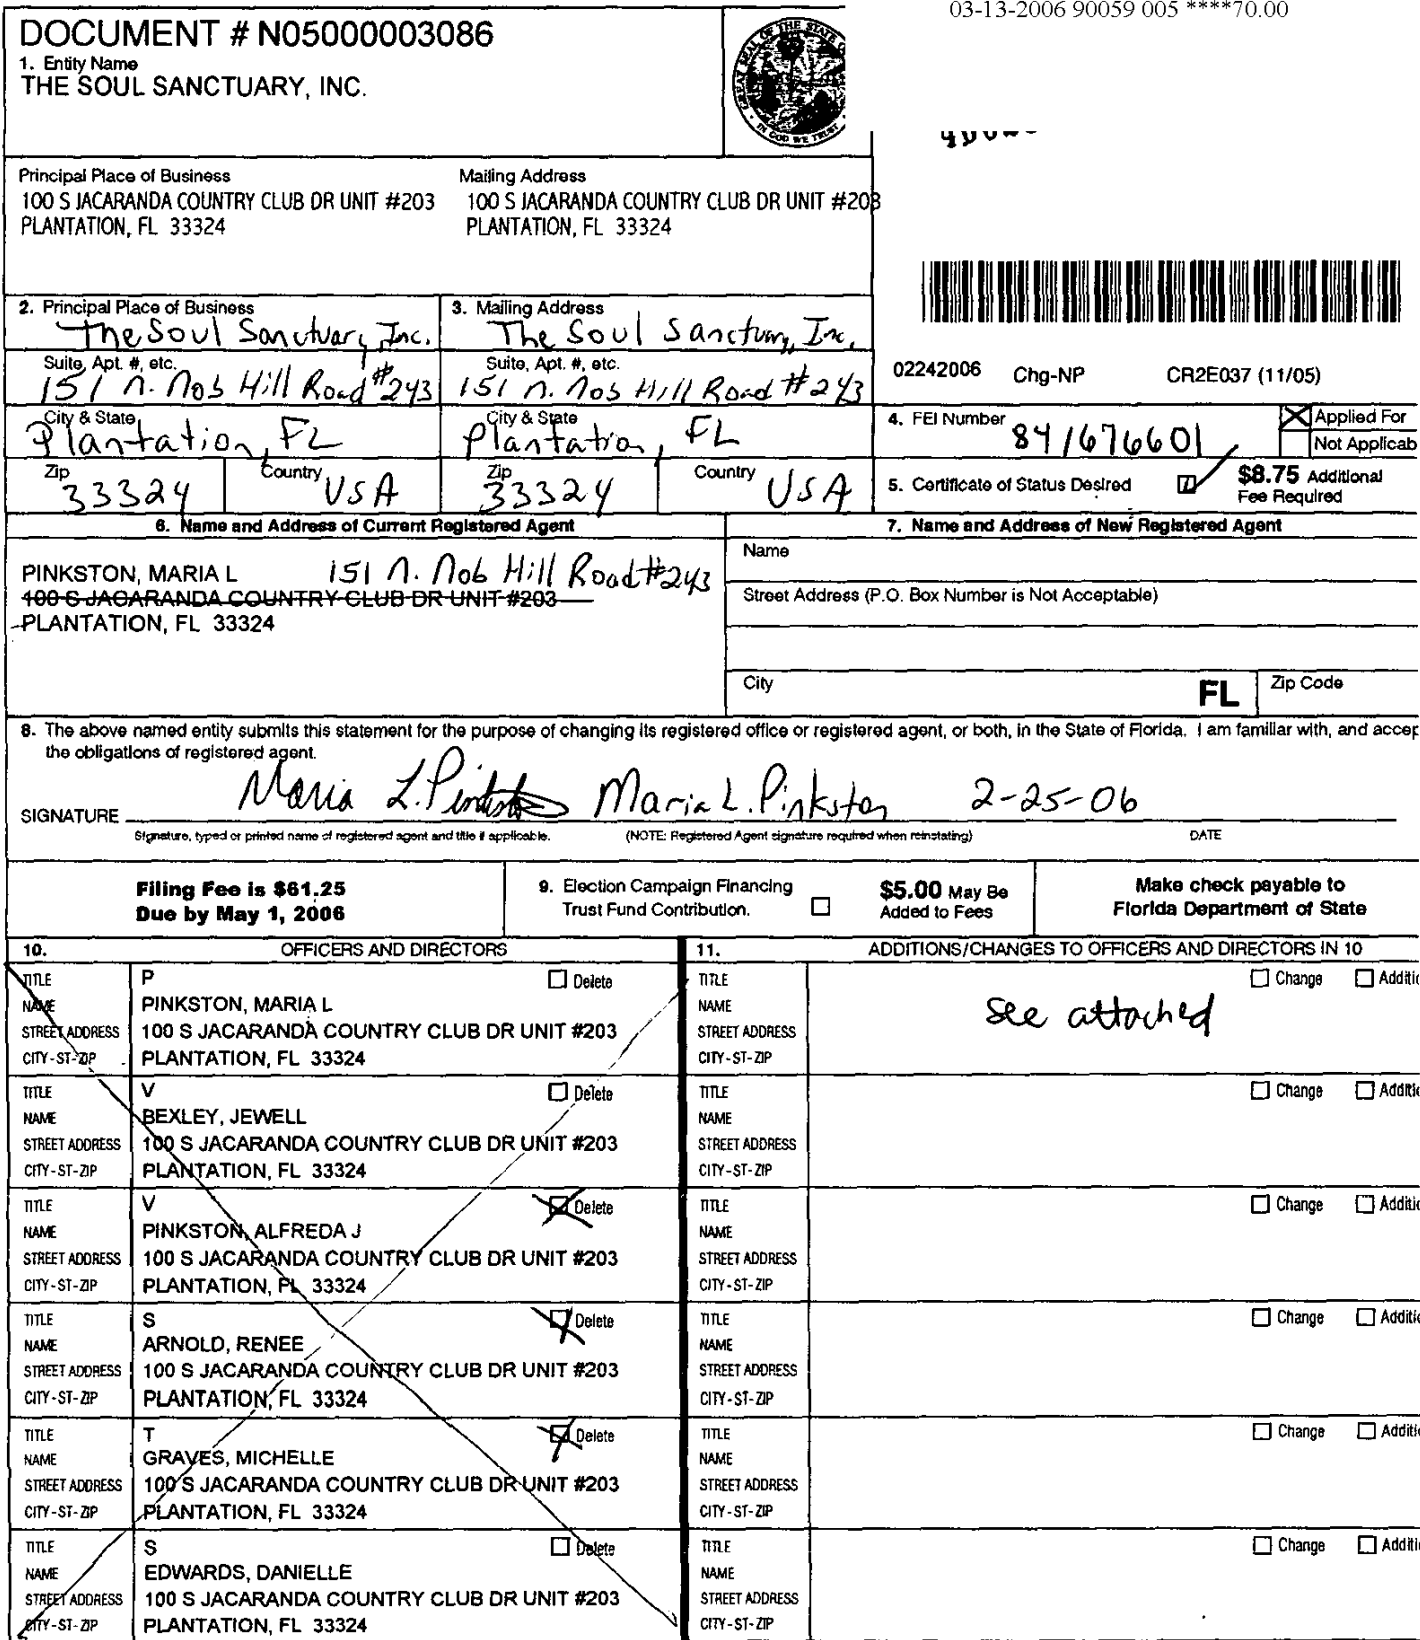 03-13-2006 90059 005 ****70.00
DOCUMENT # N05000003086
1. Entity Name
THE SOUL SANCTUARY, INC.
Principal Place of Business
100 S JACARANDA COUNTRY CLUB DR UNIT #203
PLANTATION, FL 33324
Mailing Address
100 S JACARANDA COUNTRY CLUB DR UNIT #203
PLANTATION, FL 33324
2. Principal Place of Business
The Soul Sanctuary, Inc.
Suite, Apt. #, etc.
151 N. Nob Hill Road #243
City & State
Plantation, FL
Zip
33324
Country
USA
3. Mailing Address
The Soul Sanctuary, Inc.
Suite, Apt. #, etc.
151 N. Nob Hill Road #243
City & State
Plantation, FL
Zip
33324
Country
USA
02242006 Chg-NP CR2E037 (11/05)
4. FEI Number
841676601
Applied For
Not Applicab
5. Certificate of Status Desired
$8.75 Additional
Fee Required
6. Name and Address of Current Registered Agent
PINKSTON, MARIA L
151 N. Nob Hill Road #243
100 S JACARANDA COUNTRY CLUB DR UNIT #203
PLANTATION, FL 33324
7. Name and Address of New Registered Agent
Name
Street Address (P.O. Box Number is Not Acceptable)
City
FL
Zip Code
8. The above named entity submits this statement for the purpose of changing its registered office or registered agent, or both, in the State of Florida. I am familiar with, and accep
the obligations of registered agent.
SIGNATURE
Maria L. Pinkston Maria L. Pinkston 2-25-06
Signature, typed or printed name of registered agent and title if applicable. (NOTE: Registered Agent signature required when reinstating) DATE
Filing Fee is $61.25
Due by May 1, 2006
9. Election Campaign Financing
Trust Fund Contribution.
$5.00 May Be
Added to Fees
Make check payable to
Florida Department of State
10. OFFICERS AND DIRECTORS
TITLE P Delete
NAME PINKSTON, MARIA L
STREET ADDRESS 100 S JACARANDA COUNTRY CLUB DR UNIT #203
CITY-ST-ZIP PLANTATION, FL 33324
TITLE V Delete
NAME BEXLEY, JEWELL
STREET ADDRESS 100 S JACARANDA COUNTRY CLUB DR UNIT #203
CITY-ST-ZIP PLANTATION, FL 33324
TITLE V Delete
NAME PINKSTON, ALFREDA J
STREET ADDRESS 100 S JACARANDA COUNTRY CLUB DR UNIT #203
CITY-ST-ZIP PLANTATION, FL 33324
TITLE S Delete
NAME ARNOLD, RENEE
STREET ADDRESS 100 S JACARANDA COUNTRY CLUB DR UNIT #203
CITY-ST-ZIP PLANTATION, FL 33324
TITLE T Delete
NAME GRAVES, MICHELLE
STREET ADDRESS 100 S JACARANDA COUNTRY CLUB DR UNIT #203
CITY-ST-ZIP PLANTATION, FL 33324
TITLE S Delete
NAME EDWARDS, DANIELLE
STREET ADDRESS 100 S JACARANDA COUNTRY CLUB DR UNIT #203
CITY-ST-ZIP PLANTATION, FL 33324
11. ADDITIONS/CHANGES TO OFFICERS AND DIRECTORS IN 10
TITLE Change Additi
NAME see attached
STREET ADDRESS
CITY-ST-ZIP
TITLE Change Additi
NAME
STREET ADDRESS
CITY-ST-ZIP
TITLE Change Additi
NAME
STREET ADDRESS
CITY-ST-ZIP
TITLE Change Additi
NAME
STREET ADDRESS
CITY-ST-ZIP
TITLE Change Additi
NAME
STREET ADDRESS
CITY-ST-ZIP
TITLE Change Additi
NAME
STREET ADDRESS
CITY-ST-ZIP